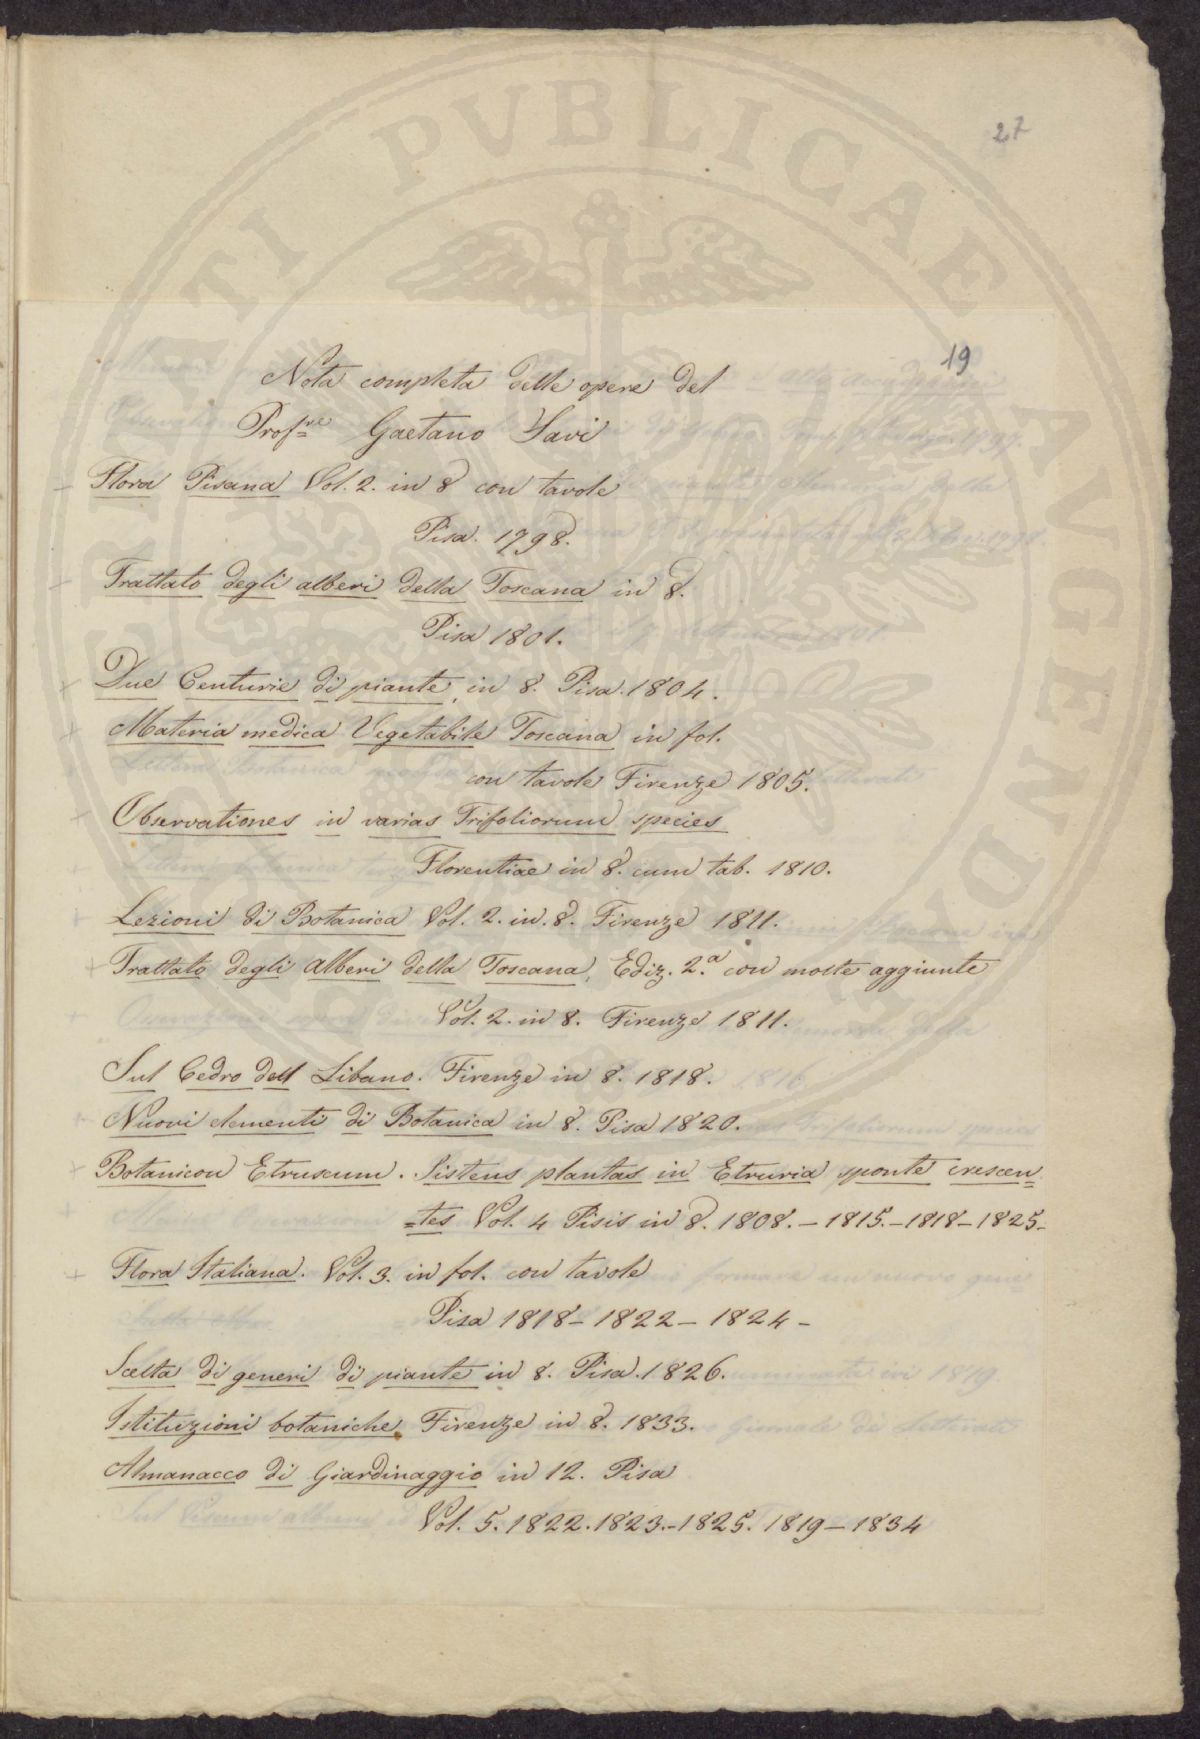 27
19
Nota completa delle opere del
Prof.re Gaetano Savi
– Flora Pisana Vol. 2. in 8 con tavole
Pisa. 1798.
– Trattato degli alberi della Toscana in 8.
Pisa 1801.
+ Due Centurie di piante, in 8. Pisa. 1804.
+ Materia medica Vegetabile Toscana in fol.
con tavole Firenze 1805.
+ Observationes in varias Trifoliorum species
Florentiae in 8. cum tab. 1810.
+ Lezioni di Botanica Vol. 2. in. 8. Firenze 1811.
+ Trattato degli alberi della Toscana, Ediz. 2.a con molte aggiunte
Vol. 2. in 8. Firenze 1811.
Sul Cedro dell Libano. Firenze in 8. 1818.
+ Nuovi elementi di Botanica in 8. Pisa 1820.
+ Botanicon Etruscum. Sistens plantas in Etruria sponte crescen=
=tes Vol. 4 Pisis in 8. 1808. – 1815. – 1818 – 1825 –
+ Flora Italiana. Vol. 3. in fol. con tavole
Pisa 1818 – 1822 – 1824 –
Scelta di generi di piante in 8. Pisa. 1826.
Istituzioni botaniche. Firenze in 8. 1833.
Almanacco di Giardinaggio in 12. Pisa
Vol. 5. 1822. 1823. – 1825. 1819 – 1834